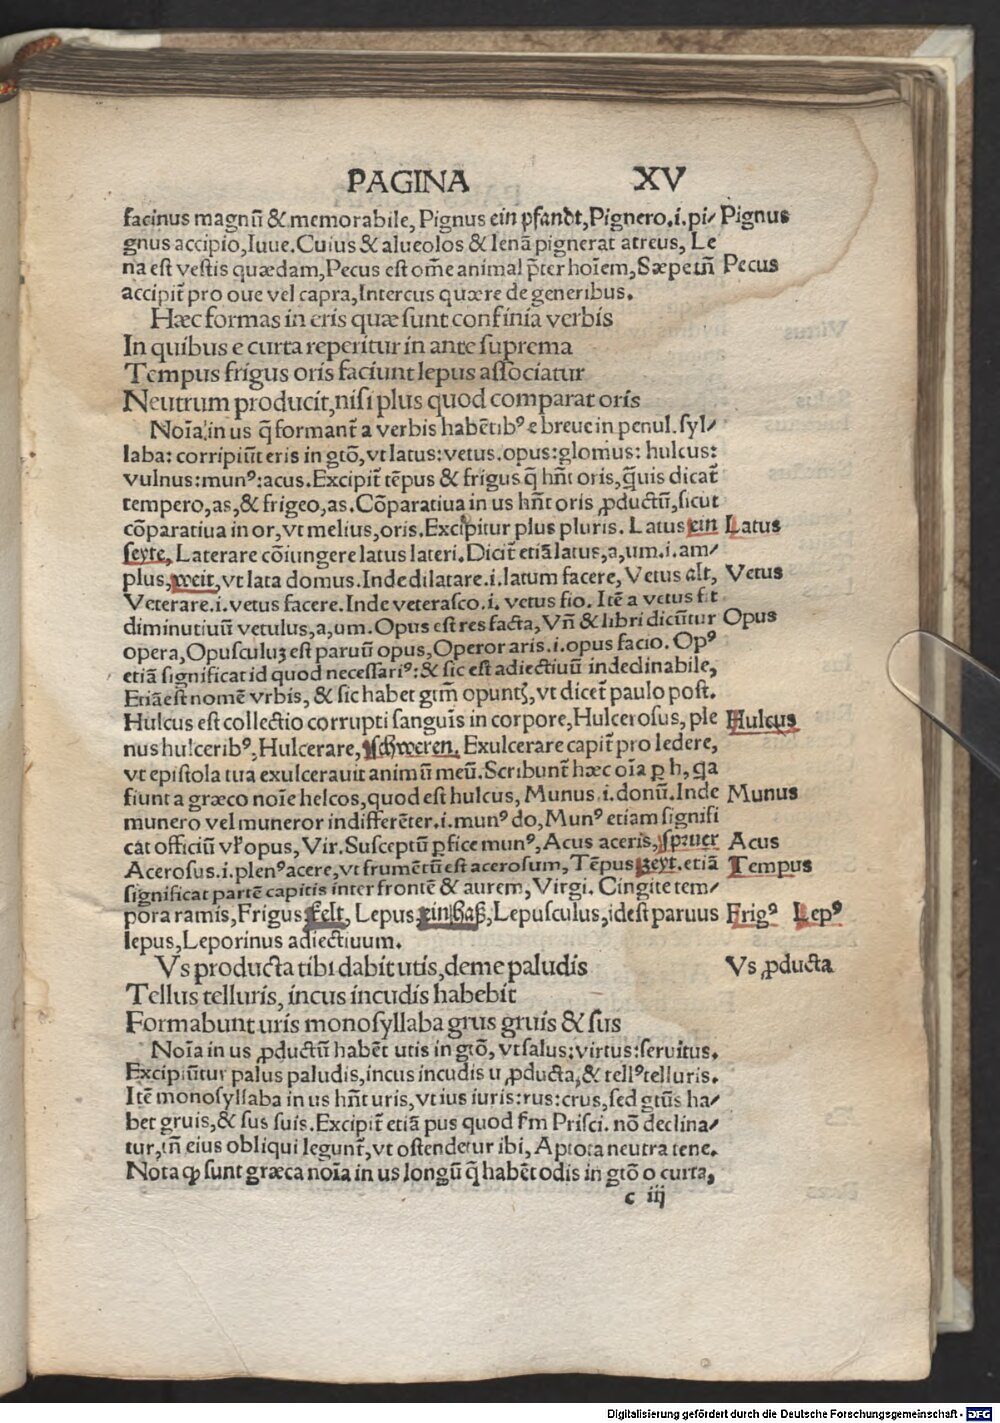 PAGINA XV
facinus magnū & memorabile, Pignus ein pfandt, Pignero.i.pi⸗ Pignus
gnus accipio, Iuue. Cuius & alueolos & lenā pignerat atreus, Le
na est vestis quædam, Pecus est om̄e animal p̄ter hoīem, Sæpe tn̄ Pecus
accipit̄ pro oue vel capra, Intercus quære de generibus.
Hæc formas in eris quæ sunt confinia verbis
In quibus e curta reperitur in ante suprema
Tempus frigus oris faciunt lepus associatur
Neutrum producit, nisi plus quod comparat oris
Noīa in us q̄ formant̄ a verbis habētibꝰ e breue in penul. syl⸗
laba: corripiūt eris in gtō, vt latus: vetus. opus: glomus: hulcus:
vulnus: munꝰ: acus. Excipit̄ tēpus & frigus q̄ hn̄t oris, q̄uis dicat̄
tempero, as, & frigeo, as. Cōparatiua in us hn̄t oris ꝓductū, sicut
cōparatiua in or, vt melius, oris. Excipitur plus pluris. Latus ein Latus
seyte, Laterare cōiungere latus lateri. Dicit̄ etiā latus, a, um. i. am⸗
plus, weit, vt lata domus. Inde dilatare .i. latum facere, Vetus alt, Vetus
Veterare .i. vetus facere. Inde veterasco .i. vetus fio. Itē a vetus fit
diminutiuū vetulus, a, um. Opus est res facta, Vn̄ & libri dicūtur Opus
opera, Opusculuꝫ est paruū opus, Operor aris .i. opus facio. Opꝰ
etiā significat id quod necessariꝰ: & sic est adiectiuū indeclinabile,
Etiā est nomē vrbis, & sic habet gtm̄ opunt, vt dicet̄ paulo post.
Hulcus est collectio corrupti sanguīs in corpore, Hulcerosus, ple Hulcus
nus hulceribꝰ, Hulcerare, schweren. Exulcerare capit̄ pro ledere,
vt epistola tua exulcerauit animū meū. Scribunt̄ hæc oīa ꝑ h, qa
fiunt a græco noīe helcos, quod est hulcus, Munus .i. donū. Inde Munus
munero vel muneror indifferēter .i. munꝰ do, Munꝰ etiam signifi
cat officiū vl̄ opus, Vir. Susceptū ꝑfice munꝰ, Acus aceris, spruer Acus
Acerosus .i. plenꝰ acere, vt frumētū est acerosum, Tēpus zeyt. etiā Tempus
significat partē capitis inter frontē & aurem, Virgi. Cingite tem⸗
pora ramis, Frigus kelt, Lepus ein haß, Lepusculus, idest paruus Frigꝰ Lepꝰ
lepus, Leporinus adiectiuum.
Vs producta tibi dabit utis, deme paludis Vs ꝓducta
Tellus telluris, incus incudis habebit
Formabunt uris monosyllaba grus gruis & sus
Noīa in us ꝓductū habēt utis in gtō, vt salus: virtus: seruitus.
Excipiūtur palus paludis, incus incudis u ꝓducta, & tellꝰ telluris.
Itē monosyllaba in us hn̄t uris, vt ius iuris: rus: crus, sed gtūs ha⸗
bet gruis, & sus suis. Excipit̄ etiā pus quod f̄m Prisci. nō declina⸗
tur, tn̄ eius obliqui legunt̄, vt ostendetur ibi, Aptota neutra tene.
Nota ꝙ sunt græca noīa in us longū q̄ habēt odis in gtō o curta,
c iij
Digitalisierung gefördert durch die Deutsche Forschungsgemeinschaft - DFG